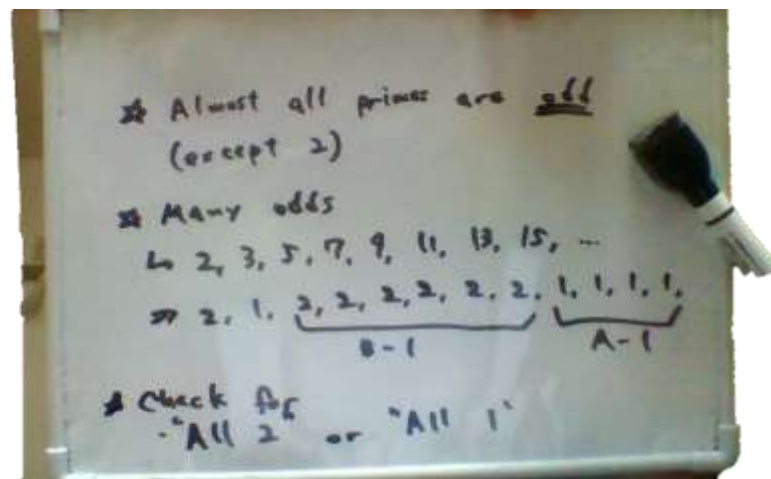 * Almost all primes are odd
(except 2)
* Many odds
↳ 2, 3, 5, 7, 9, 11, 13, 15, ...
⇒ 2, 1, 2, 2, 2, 2, 2, 2, 1, 1, 1, 1,
B-1 A-1
* Check for
- "All 2" or "All 1"